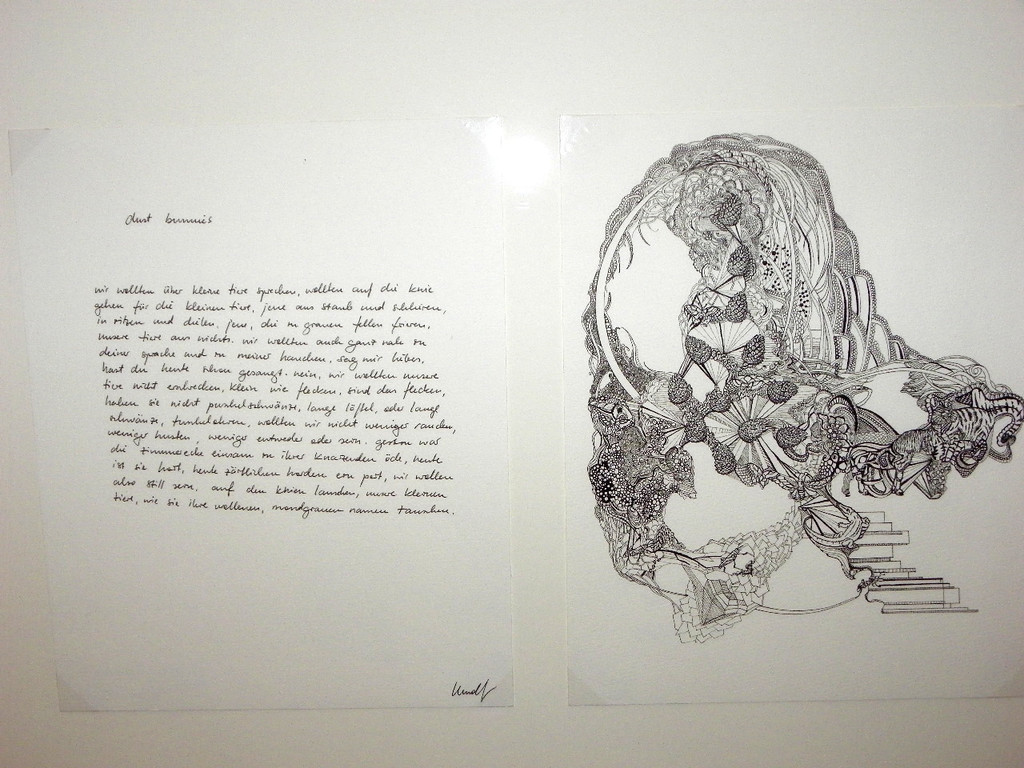 dust bunnies
wir wollten über kleine tiere sprechen, wollten auf die knie
gehen für die kleinen tiere, jene aus staub und schlieren,
in ritzen und dielen, jene, die in grauen fellen frieren,
unsere tiere aus nichts. wir wollten auch ganz nah in
deiner sprache und in meiner hauchen, sag mir liebes,
hast du heute schon gesaugt. nein, wir wollten unsere
tiere nicht erschrecken, klein wie flecken, sind das flecken,
haben sie nicht puschelschwänze, lange löffel, oder lange
schwänze, tunkelohren, wollten wir nicht weniger rauchen,
weniger husten, weniger entweder oder sein. gestern war
die zimmerecke einsam in ihrer knarzenden öde, heute
ist sie hort, heute zärtlichen horden ein port, wir wollen
also still sein, auf den knien lauschen, unsere kleinen
tiere, wie sie ihre wollenen, mondgrauen namen tauschen.